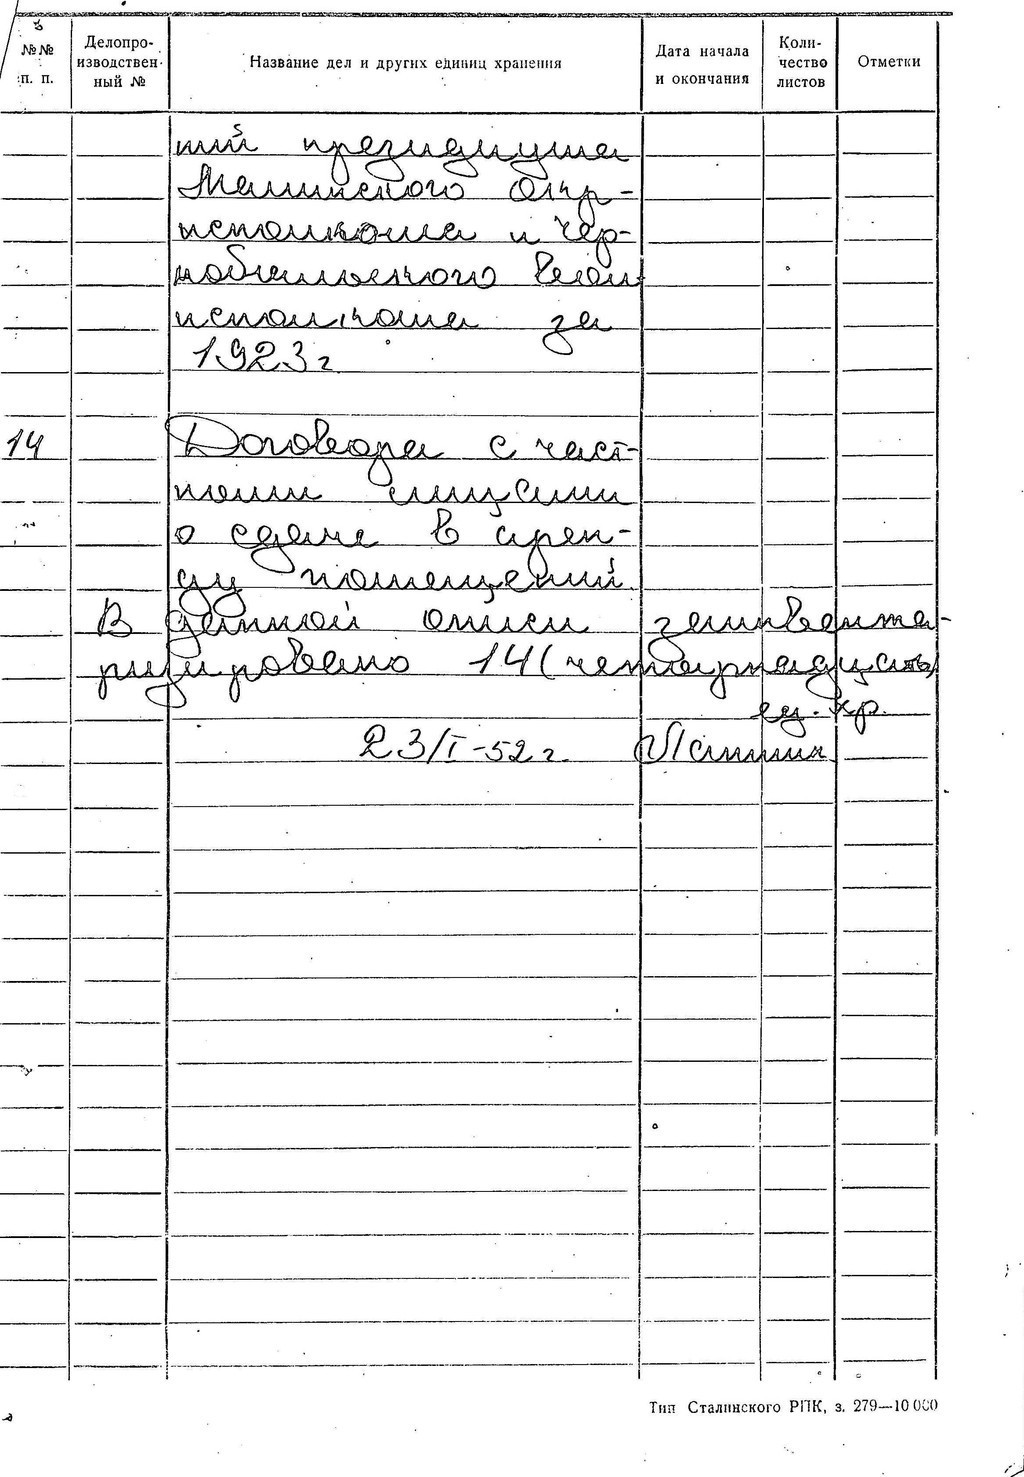 №№ п. п.
Делопро-
изводствен-
ный №
Название дел и других единиц хранения
Дата начала
и окончания
Коли-
чество
листов
Отметки
тий президиума
Малинского окр-
исполкома и Чер-
нобыльского
исполкома за
1923 г
14 Договора с част-
ными лицами
о сдаче в арен-
ду помещений
В данной описи заинвента-
ризировано 14 (четырнадцать)
ед. хр.
23/I-52 г.
Тип Сталинского РПК, з. 279—10 000